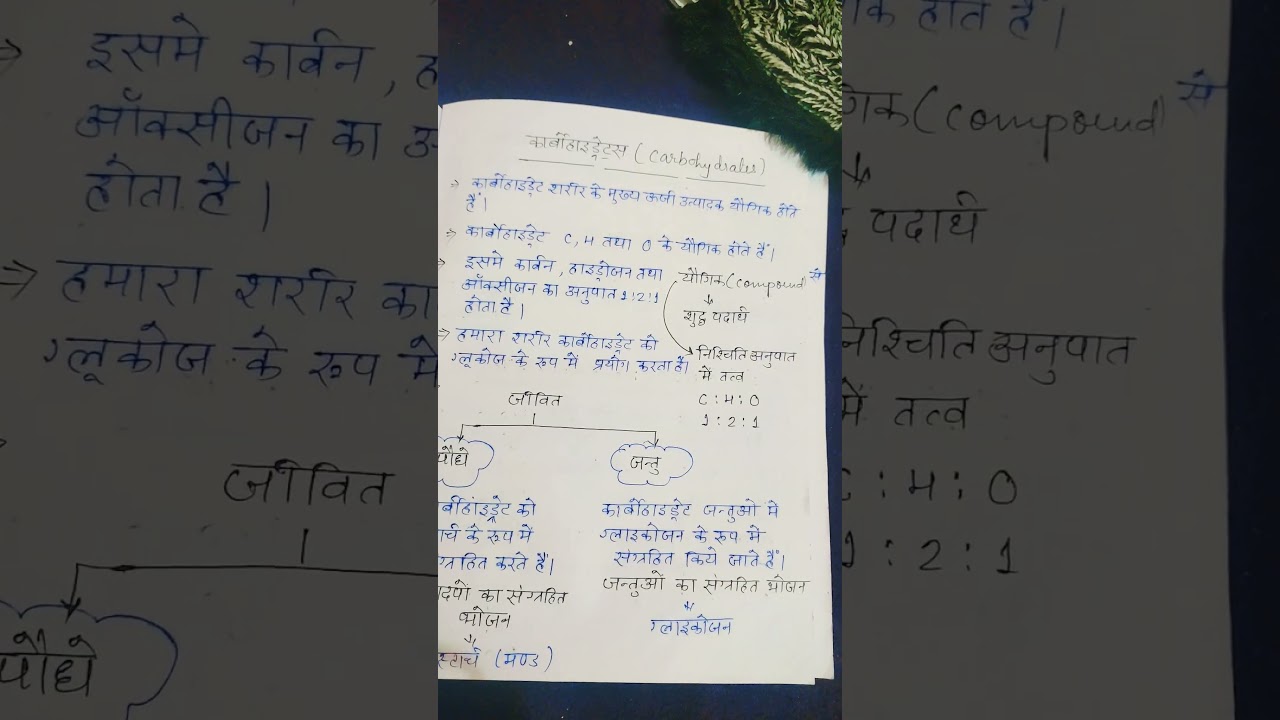 कार्बोहाइड्रेट्स (Carbohydrates)
⇒ कार्बोहाइड्रेट शरीर के मुख्य ऊर्जा उत्पादक यौगिक होते
हैं।
⇒ कार्बोहाइड्रेट C, H तथा O के यौगिक होते हैं।
इसमे कार्बन, हाइड्रोजन तथा
ऑक्सीजन का अनुपात 1:2:1
होता है।
यौगिक (compound) से
शुद्ध पदार्थ
⇒ हमारा शरीर कार्बोहाइड्रेट को
ग्लूकोज के रूप में प्रयोग करता है।
निश्चिति अनुपात
में तत्व
C : H : O
1 : 2 : 1
जीवित
पौधे
जन्तु
र्बोहाइड्रेट को
र्च के रूप में
ग्रहित करते हैं।
दपो का संग्रहित
भोजन
स्टार्च (मण्ड)
कार्बोहाइड्रेट जन्तुओ मे
ग्लाइकोजन के रूप मे
संग्रहित किये जाते हैं।
जन्तुओं का संग्रहित भोजन
ग्लाइकोजन
⇒ इसमे कार्बन, ह
ऑक्सीजन का अ
होता है।
⇒ हमारा शरीर का
ग्लूकोज के रूप मे
जीवित
पौधे
क होते हैं।
गिक (compound) से
पदार्थ
निश्चिति अनुपात
में तत्व
: H : O
1 : 2 : 1